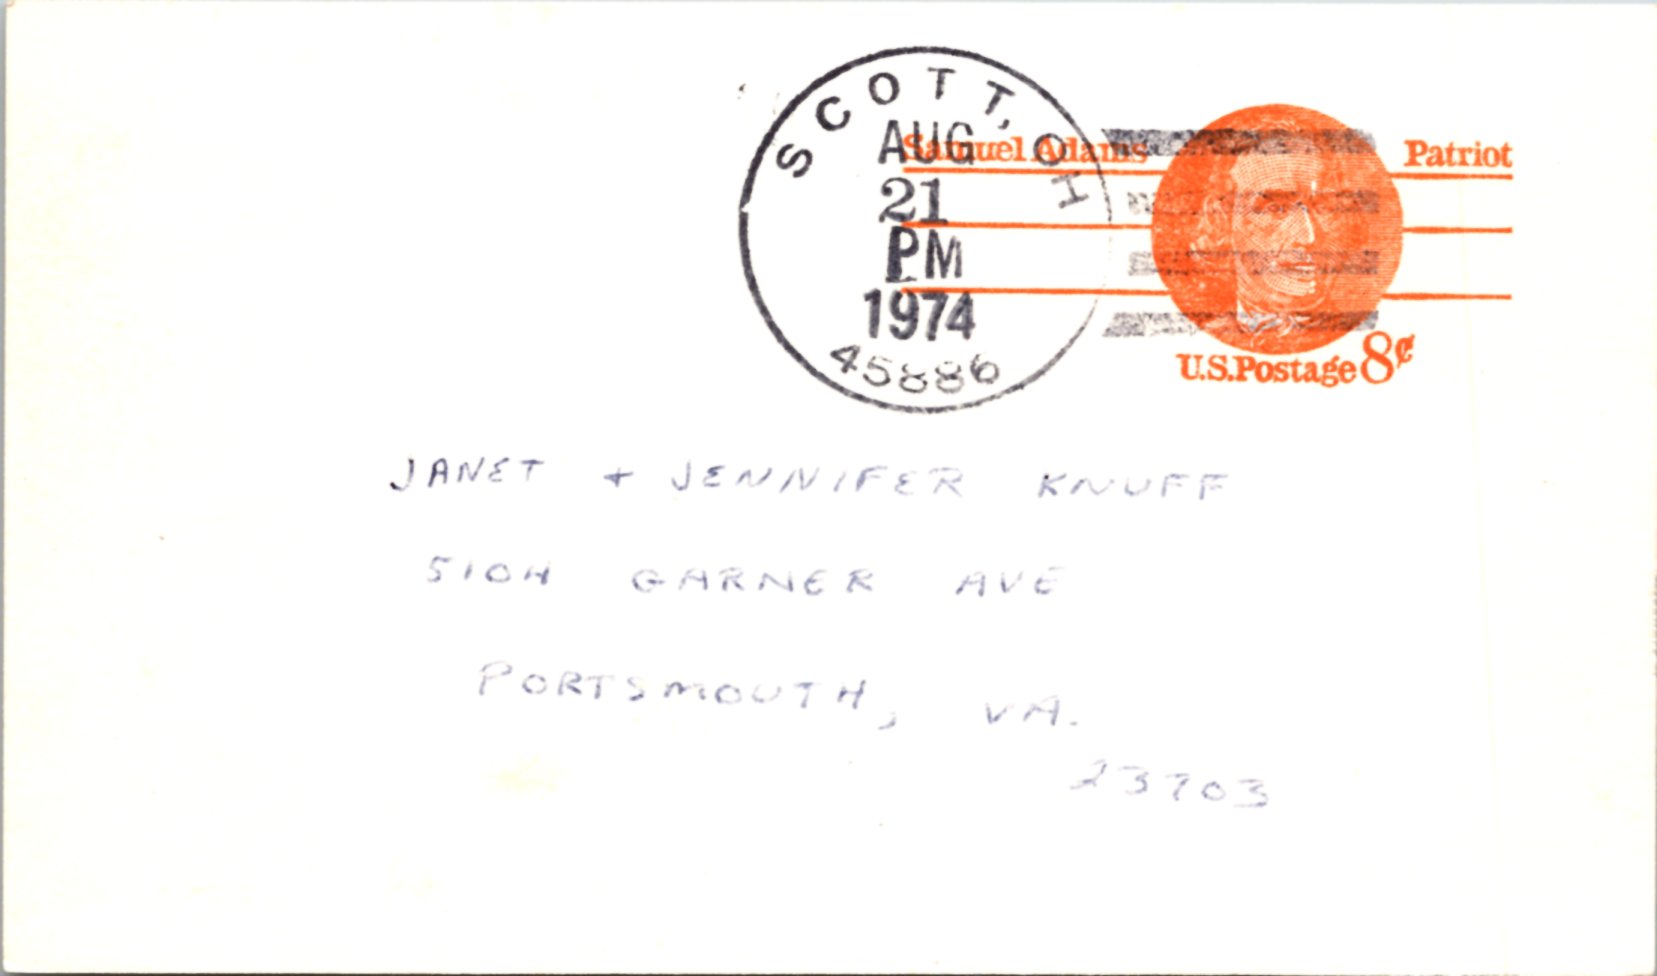 SCOTT, OH
AUG
21
PM
1974
45886
Samuel Adams Patriot
U.S.Postage 8¢
JANET + JENNIFER KNUFF
5104 GARNER AVE
PORTSMOUTH, VA.
23703